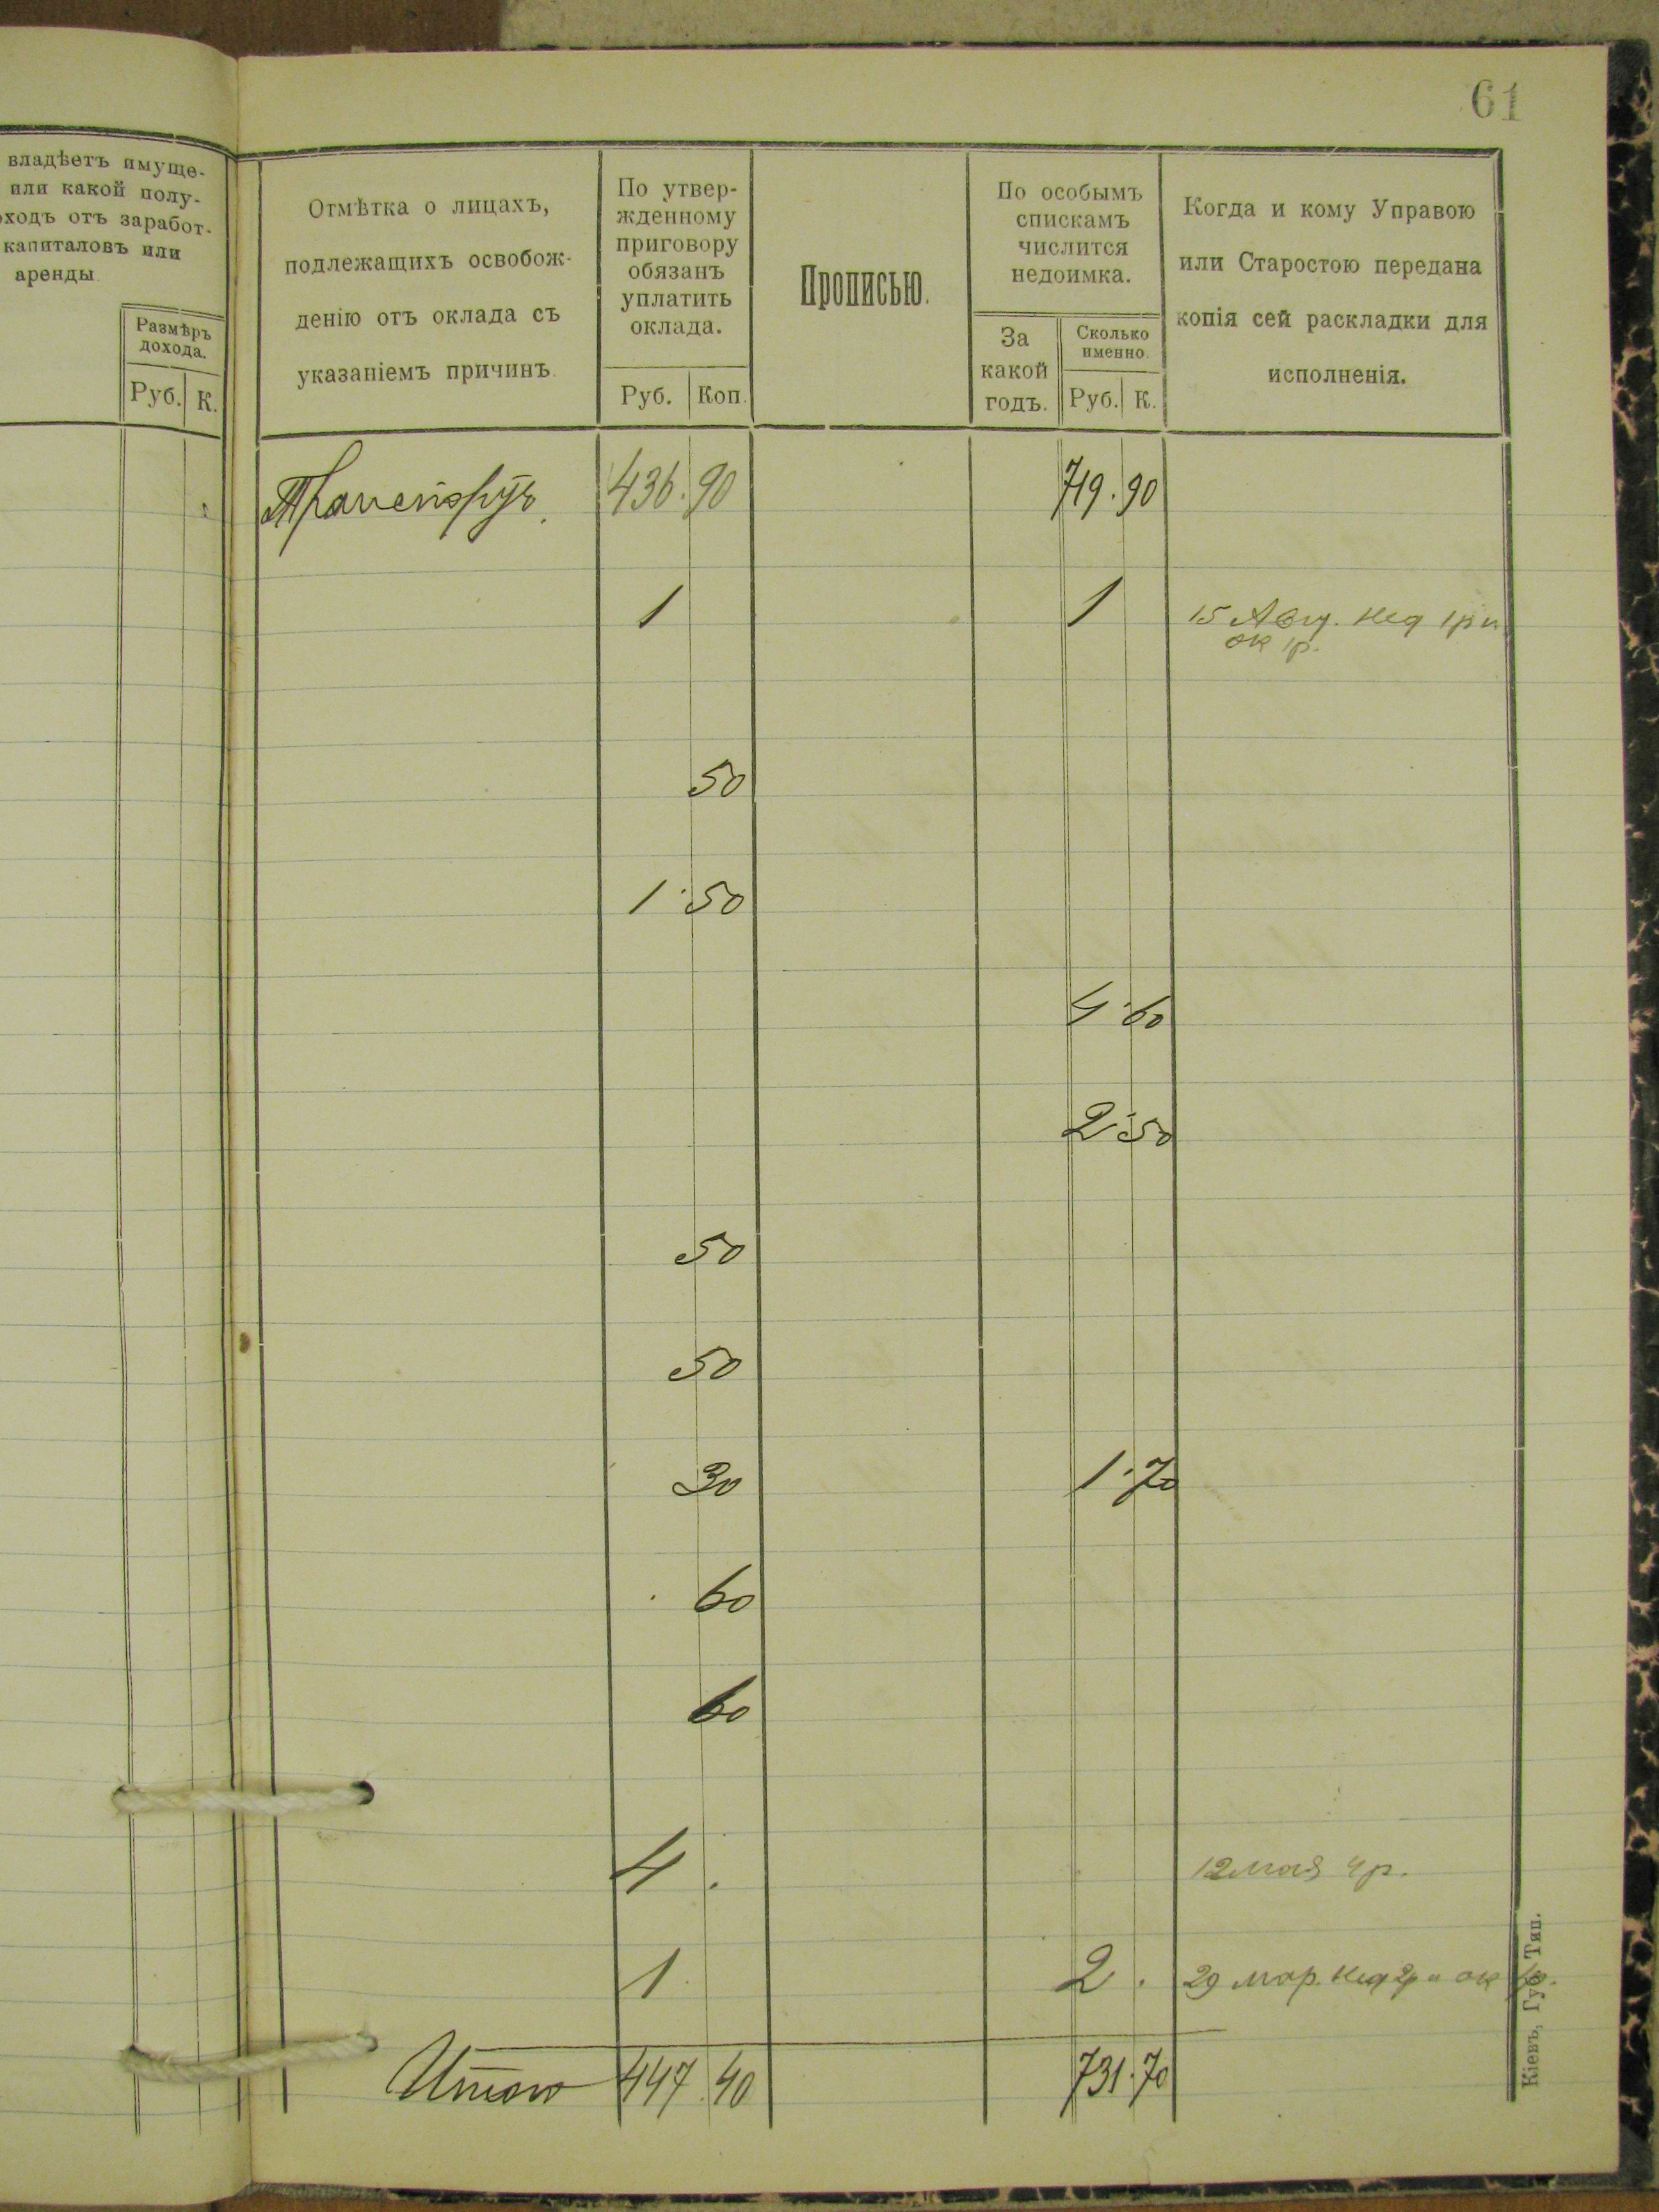 61
владѣетъ имуще-
или какой полу-
оходъ отъ заработ-
капиталовъ или
аренды
Размѣръ
дохода.
Руб. К.
Отмѣтка о лицахъ,
подлежащихъ освобож-
денію отъ оклада съ
указаніемъ причинъ.
По утвер-
жденному
приговору
обязанъ
уплатить
оклада.
Руб. Коп.
Прописью.
По особымъ
спискамъ
числится
недоимка.
За
какой
годъ.
Сколько
именно.
Руб. К.
Когда и кому Управою
или Старостою передана
копія сей раскладки для
исполненія.
Транспортъ 436.90 719.90
1 1 15 Авг. нед 1р и
ок 1р.
50
1.50
4.60
2.50
50
50
30 1.70
60
60
4. 12 мая 4р.
1 2. 29 мар. нед 2р и ок
Итого 447.40 731.70
Кіевъ, Губ. Тип.